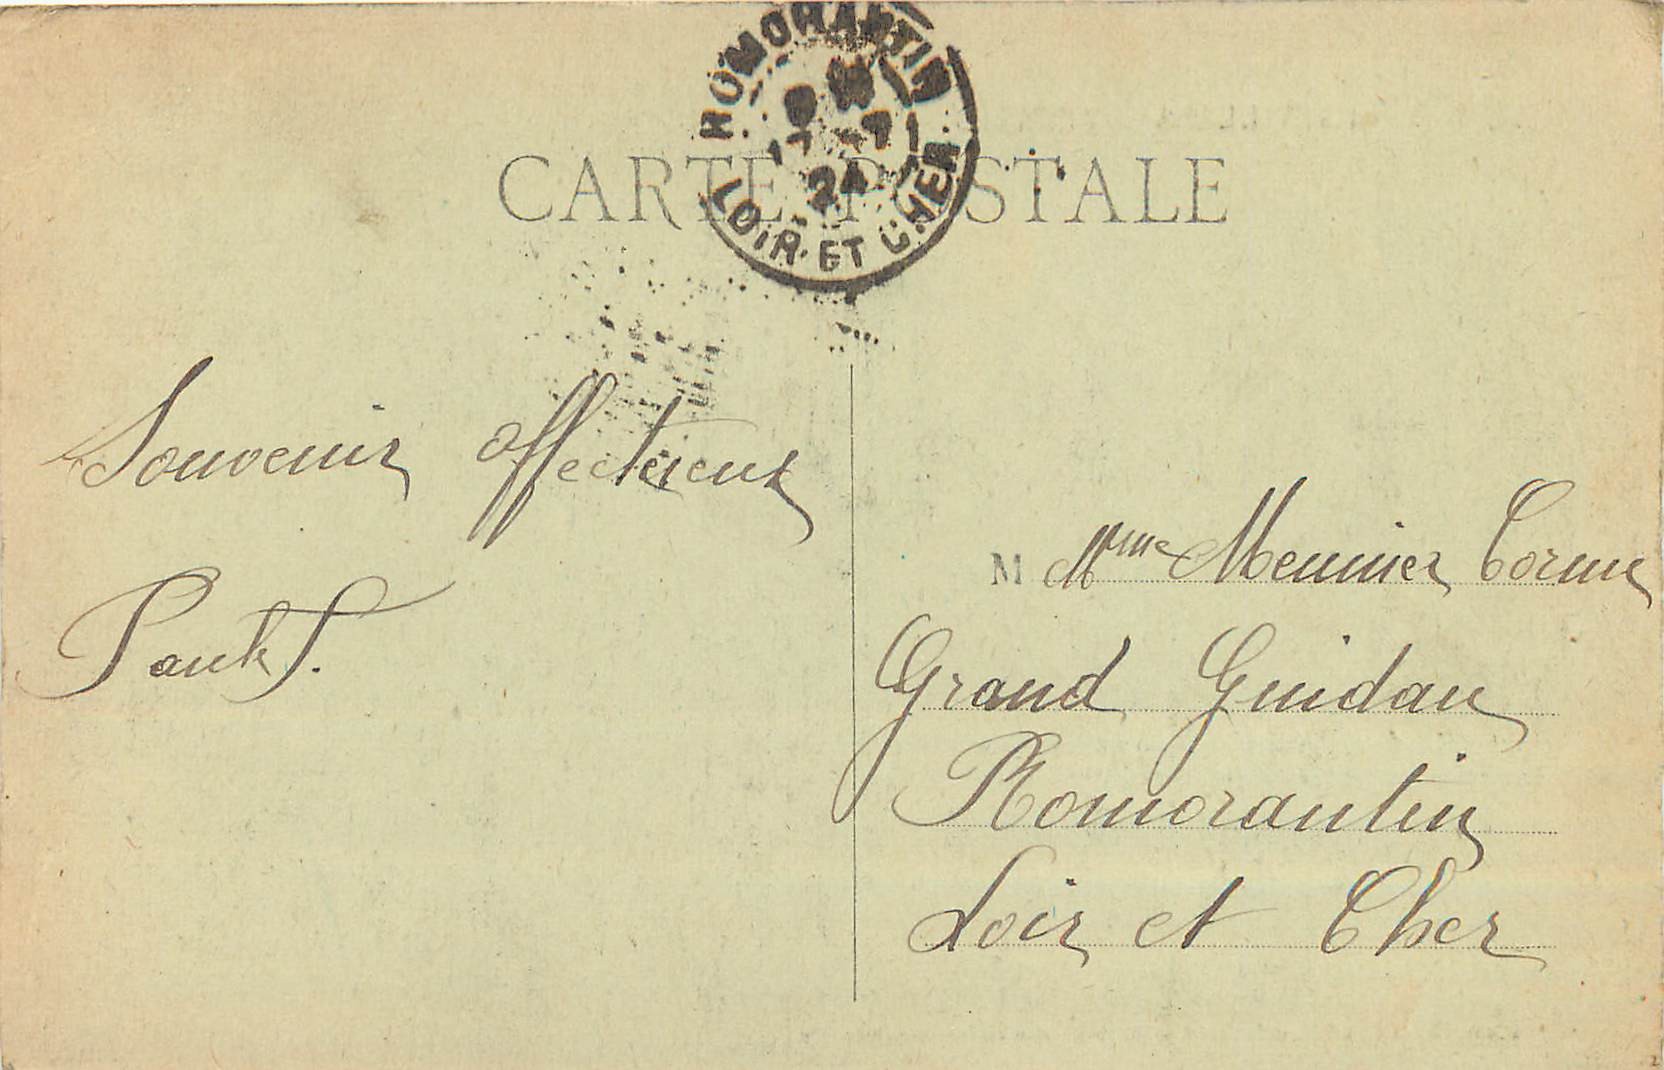 ROMORANTIN
24
LOIR-ET-CHER
CARTE POSTALE
Souvenir affectueux
Paul S.
M Mme Meunier
Grand Guidau
Romorantin
Loir et Cher